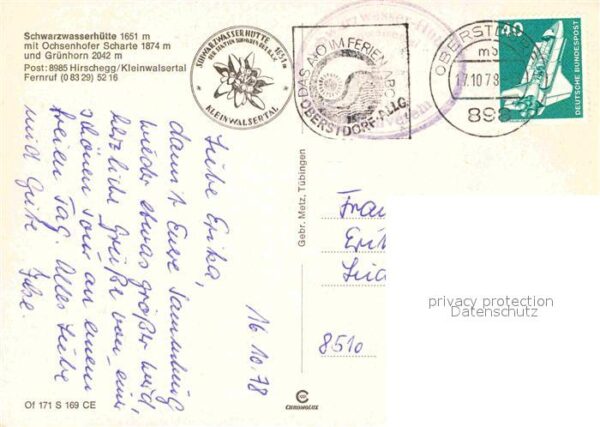 Schwarzwasserhütte 1651 m
mit Ochsenhofer Scharte 1874 m
und Grünhorn 2042 m
Post: 8985 Hirschegg/Kleinwalsertal
Fernruf (0 83 29) 52 16
SCHWARZWASSERHÜTTE 1651 m
DER SEKTION SCHWABEN DES D.A.V.
KLEINWALSERTAL
DAS O IM FERIEN-ABC
OBERSTDORF-ALLG.
OBERSTDORF
17.10.78
898
40
DEUTSCHE BUNDESPOST
16.10.78
Liebe Erika,
damit Eure Sammlung
wieder etwas größer wird,
herzliche Grüße von einer
schönen Tour an einem
freien Tag. Alles Liebe
und Gute
Ilse.
Gebr. Metz, Tübingen
Frau
Erik
8510
privacy protection
Datenschutz
Of 171 S 169 CE
CHROMOLUX